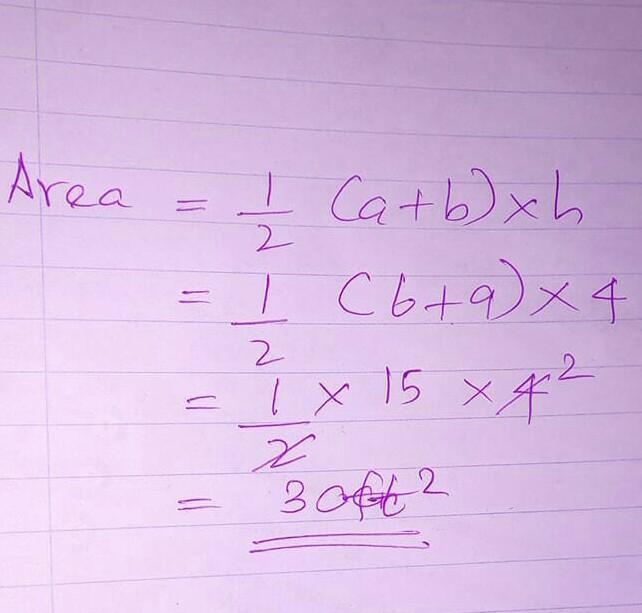 Area = 1/2 (a+b)×h
= 1/2 (6+9)×4
= 1/2 × 15 × 4 2
= 30ft²